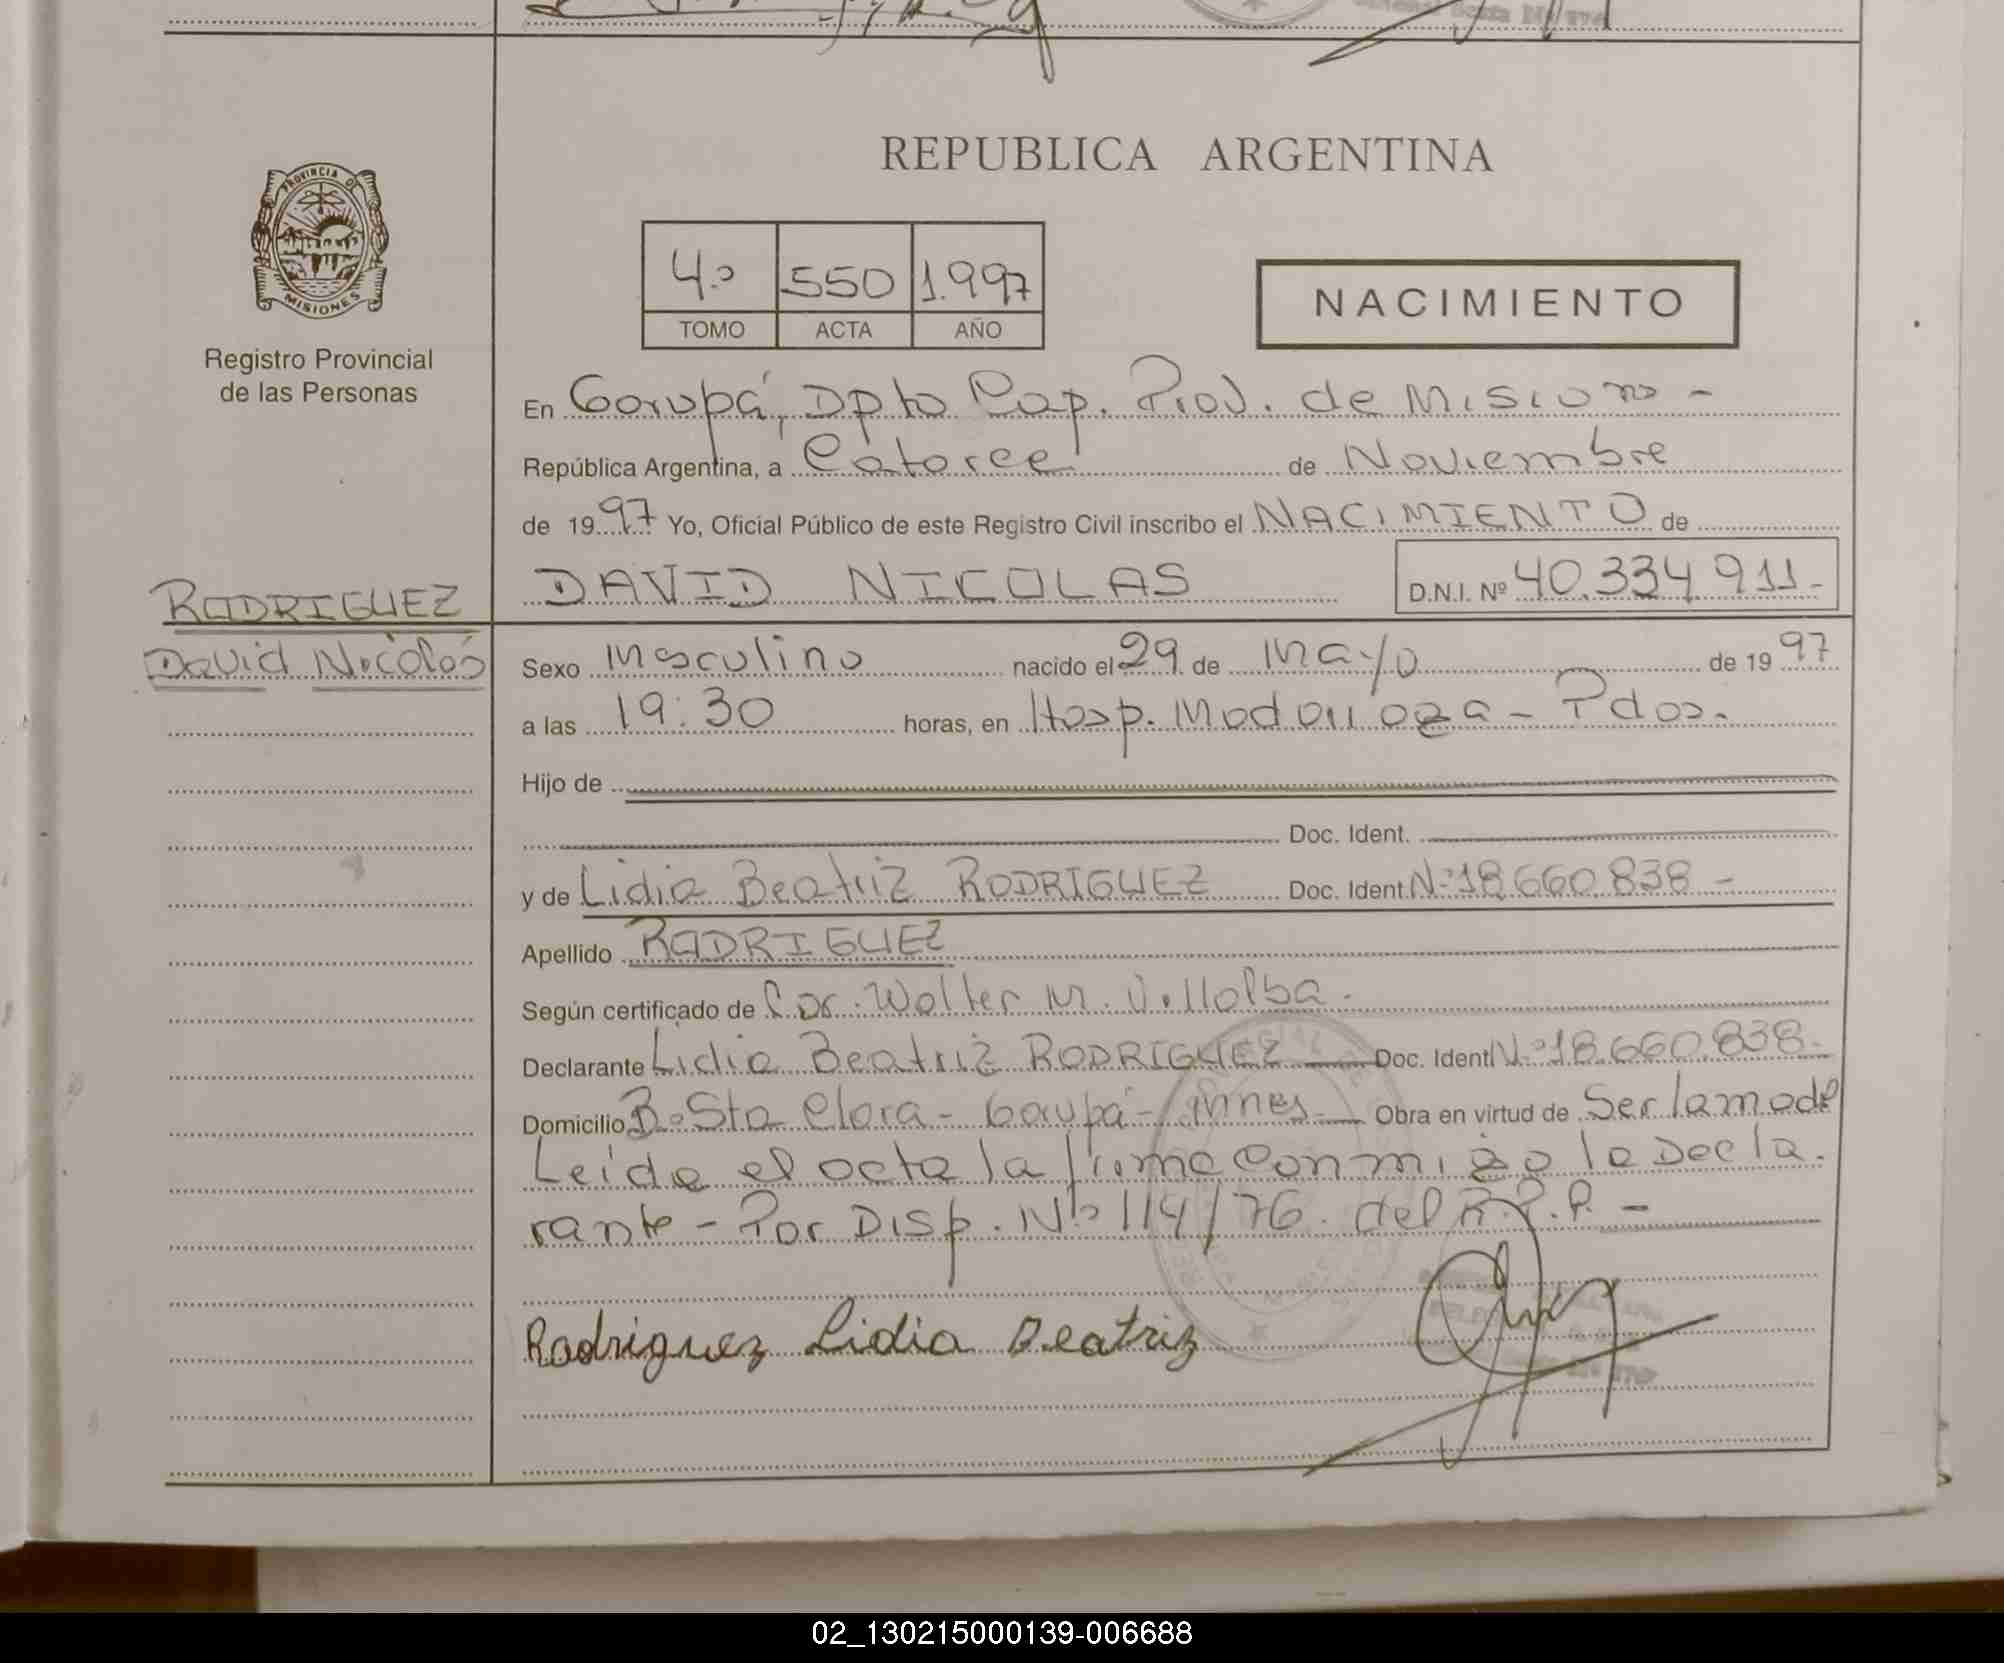 REPUBLICA ARGENTINA
PROVINCIA DE
MISIONES
Registro Provincial
de las Personas
4.º 550 1.997
TOMO ACTA AÑO
NACIMIENTO
En Garupá, Dpto Cap. Prov. de Misiones -
República Argentina, a Catorce de Noviembre
de 1997 Yo, Oficial Público de este Registro Civil inscribo el NACIMIENTO de
DAVID NICOLAS D.N.I. Nº 40.334.911-
RODRIGUEZ
David Nicolás
Sexo Masculino nacido el 29 de Mayo de 1997
a las 19:30 horas, en Hosp. Madariaga - Pdas.
Hijo de
Doc. Ident.
y de Lidia Beatriz RODRIGUEZ Doc. Ident. Nº 18.660.838 -
Apellido RODRIGUEZ
Según certificado de Dr. Walter M. Villalba.
Declarante Lidia Beatriz RODRIGUEZ Doc. Ident. Nº 18.660.838-
Domicilio Bº Sta Clara - Garupá - Mnes. Obra en virtud de Ser la madre
Leída el acta la firma conmigo la Decla.
rante - Por Disp. Nº 114/76 del R.P.P. -
Rodriguez Lidia Beatriz
02_130215000139-006688